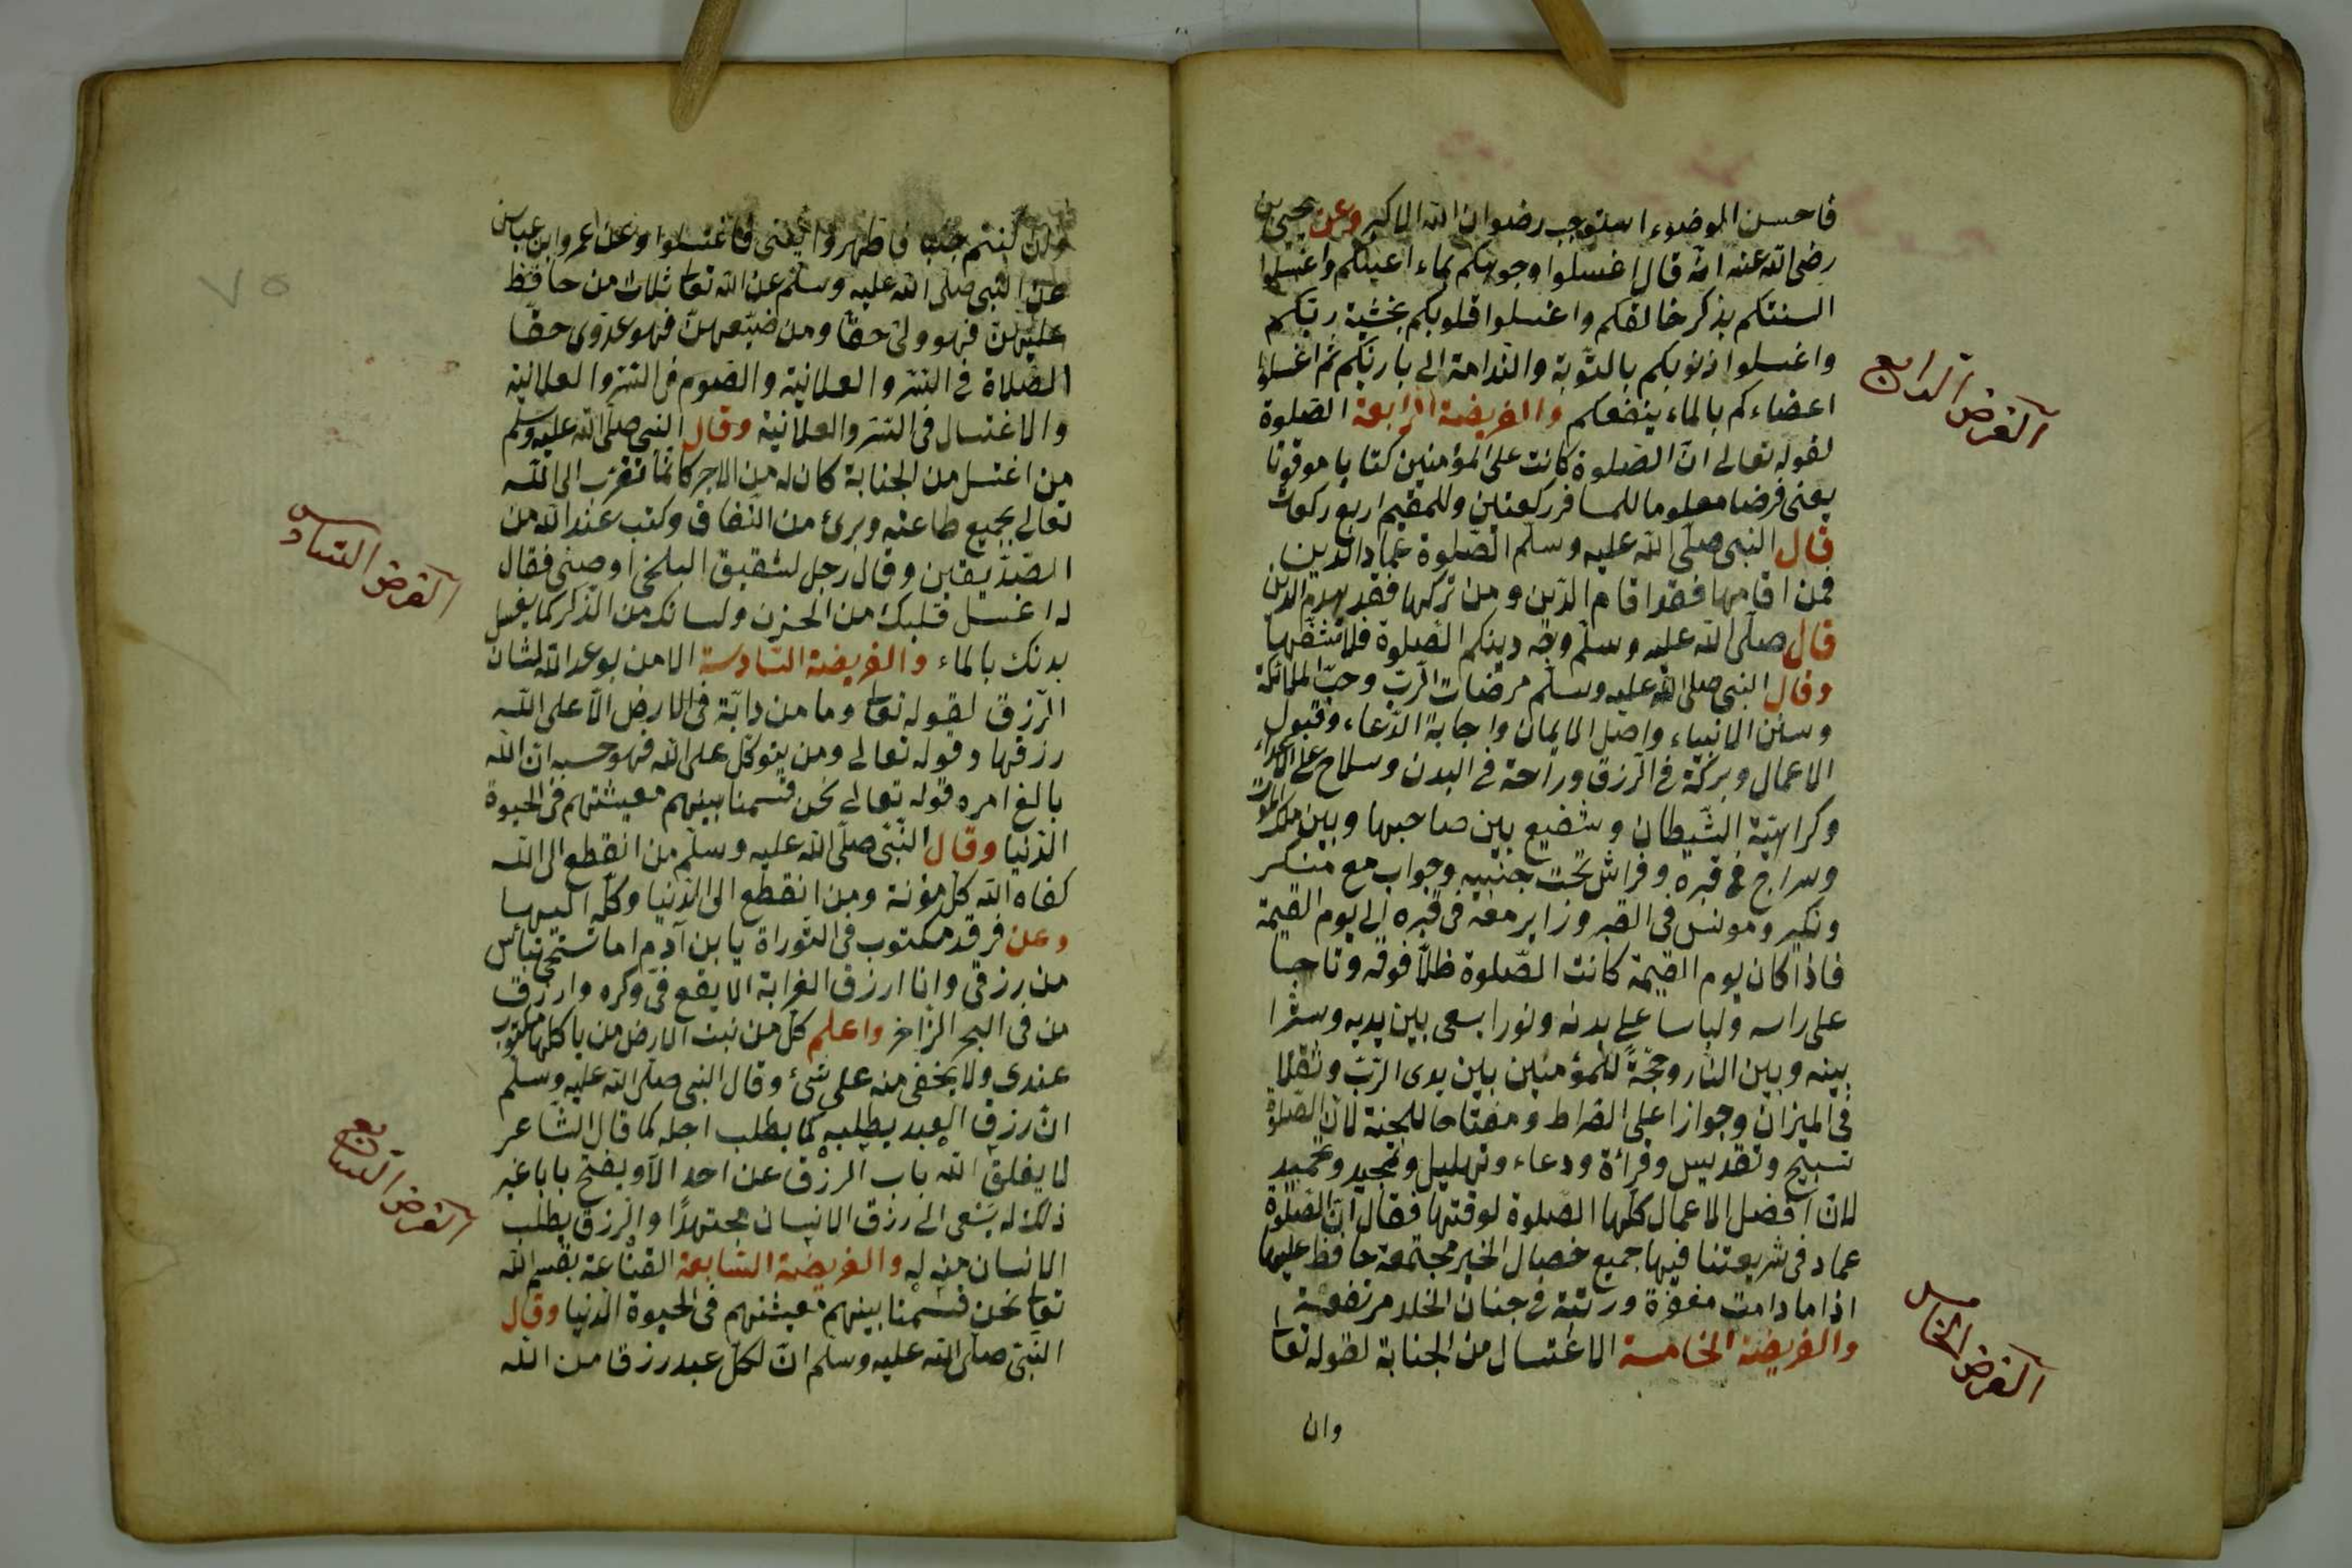 فاحسن الوضوء استوجب رضوان الله الاكبر وعن يحيى بن
رضى الله عنه انه قال اغسلوا وجوهكم بماء اعينكم واغسلوا
السنتكم بذكر خالقكم واغسلوا قلوبكم بخشية ربكم
واغسلوا ذنوبكم بالتوبة والندامة الى باريكم ثم اغسلوا
الفرض الرابع
اعضاءكم بالماء ينفعكم والفريضة الرابعة الصلوة
لقوله تعالى ان الصلوة كانت على المؤمنين كتابا موقوتا
يعنى فرضا معلوما للمسافر ركعتين وللمقيم اربع ركعات
قال النبى صلى الله عليه وسلم الصلوة عماد الدين
فمن اقامها فقد اقام الدين ومن تركها فقد يهدم الدين
قال صلى الله عليه وسلم وجه دينكم الصلوة فلا
وقال النبى صلى الله عليه وسلم مرضات الرب وحب الملائكة
وسنن الانبياء واصل الايمان واجابة الدعاء وقبول
الاعمال وبركة فى الرزق وراحة فى البدن وسلاح على الاعداء
وكراهية الشيطان وشفيع بين صاحبها وبين ملك الموت
وسراج فى قبره وفراش تحت جنبيه وجواب مع منكر
ونكير ومونس فى القبر وزاير معه فى قبره الى يوم القيمة
فاذا كان يوم القيمة كانت الصلوة ظلا فوقه وتاجا
على راسه ولباسا على بدنه ونورا يسعى بين يديه وسترا
بينه وبين النار وحجة للمؤمنين بين يدى الرب وثقلا
فى الميزان وجوازا على الصراط ومفتاحا للجنة لان الصلوة
تسبيح وتقديس وقرائة ودعاء وتهليل وتمجيد وتحميد
لان افضل الاعمال كلها الصلوة لوقتها فقال ان الصلوة
عماد فى شريعتنا فيها جميع خصال الخير مجتمعة حافظ عليها
اذا ما دامت مغفرة ورتبة فى جنان الخلد مرتفعة
والفريضة الخامسة الاغتسال من الجنابة لقوله تعا
الفرض الخامس
وان
٧٥
وان كنتم جنبا فاطهروا يعنى فاغتسلوا وعن عمر وابن عباس
عن النبى صلى الله عليه وسلم عن الله تعا ثلاث من حافظ
عليهن فهو ولى حقا ومن ضيعهن فهو عدوى حقا
الصلاة فى السر والعلانية والصوم فى السر والعلانية
والاغتسال فى السر والعلانية وقال النبى صلى الله عليه وسلم
من اغتسل من الجنابة كان له من الاجر كانما تقرب الى الله
تعالى بجميع طاعته وبرئ من النفاق وكتب عند الله من
الفرض السادس
الصديقين وقال رجل لشقيق البلخى اوصنى فقال
له اغسل قلبك من الحزن ولسانك من الذكر كما يغسل
بدنك بالماء والفريضة السادسة الامن بوعد الله لشان
الرزق لقوله تعا وما من دابة فى الارض الا على الله
رزقها وقوله تعالى ومن يتوكل على الله فهو حسبه ان الله
بالغ امره قوله تعالى نحن قسمنا بينهم معيشتهم فى الحيوة
الدنيا وقال النبى صلى الله عليه وسلم من انقطع الى الله
كفاه الله كل مؤنة ومن انقطع الى الدنيا وكله اليها
وعن فرقد مكتوب فى التوراة يا بن آدم اما تستحى
من رزقى وانا ارزق الغرابة الا يقع فى وكره وارزق
من فى البحر الزاخر واعلم كل من نبت الارض من ياكلها مكتوب
عندى ولا يخفى منه على شئ وقال النبى صلى الله عليه وسلم
ان رزق العبد يطلبه كما يطلب اجله كما قال الشاعر
الفرض السابع
لا يغلق الله باب الرزق عن احد الا ويفتح بابا غير
ذلك له يسعى الى رزق الانسان مجتهدا والرزق يطلب
الانسان منه له والفريضة السابعة القناعة بقسم الله
تعا نحن قسمنا بينهم معيشتهم فى الحيوة الدنيا وقال
النبى صلى الله عليه وسلم ان لكل عبد رزقا من الله